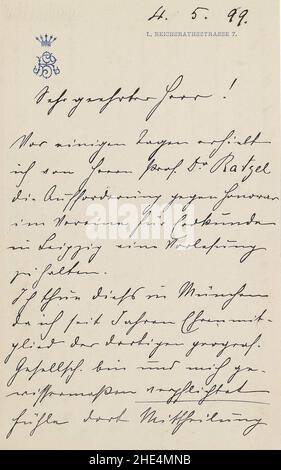 4. 5. 99.
I., REICHSRATHSSTRASSE 7.
Sehr geehrter Herr!
Vor einigen Tagen erhielt
ich von Herrn Prof. Dr Ratzel
die Aufforderung gegen Honorar
im Vereine für Erdkunde
in Leipzig eine Vorlesung
zu halten.
Ich thue dieß in München
da ich seit Jahren Ehrenmit-
glied der dortigen geograf.
Gesellsch. bin und mich ge-
wissermaßen verpflichtet
fühle dort Mittheilung
alamy
Image ID: 2HE4MNB
www.alamy.com